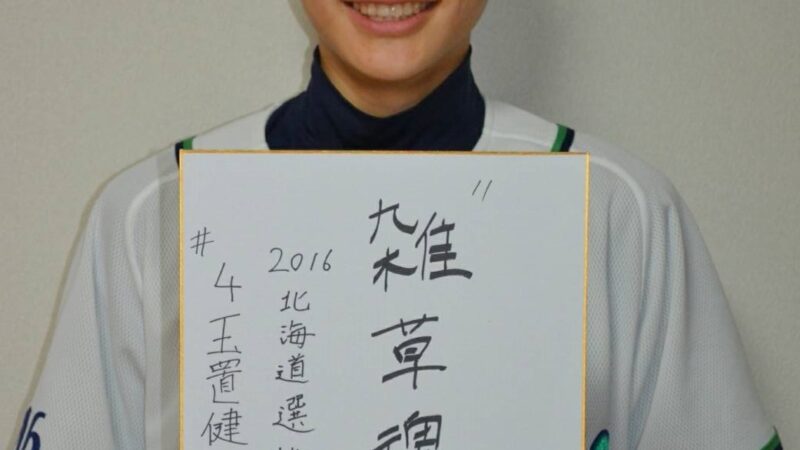 〃雑草魂
2016北海道選
#4玉置健
16